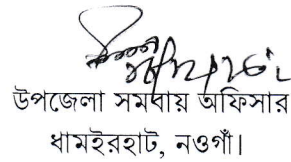 উপজেলা সমবায় অফিসার
ধামইরহাট, নওগাঁ।